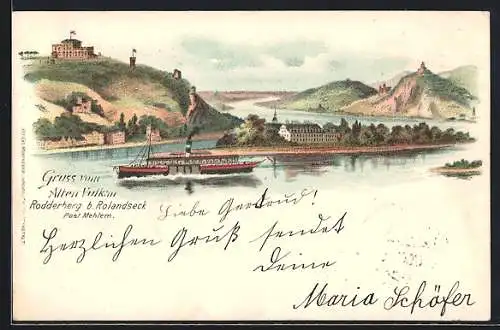 Gruss vom
Alten Vulkan
Rodderberg b. Rolandseck
Post Mehlem.
Liebe Gertrud!
Herzlichen Gruß sendet
Deine
Maria Schöfer